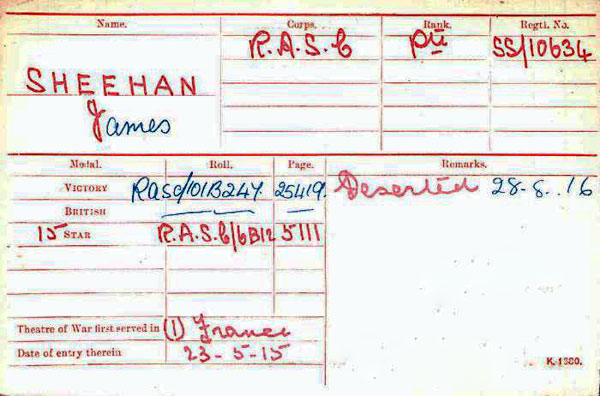 Name. Corps. Rank. Regtl. No.
R.A.S.C Pte SS/10634
SHEEHAN
James
Medal. Roll. Page. Remarks.
VICTORY RASC/101B247 25419. Deserted 28-8.16
BRITISH
15 STAR R.A.S.C/6B12 5111
Theatre of War first served in (1) France
Date of entry therein 23-5-15
K.1380.